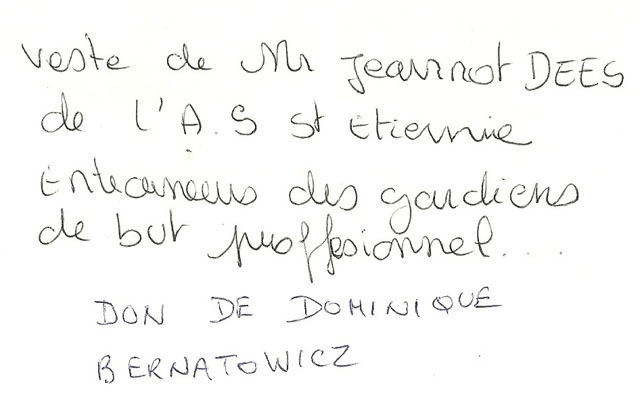 veste de Mr Jeannot DEES
de L'A.S St Etienne
Entraineurs des gardiens
de but proffesionnel....
DON DE DOMINIQUE
BERNATOWICZ